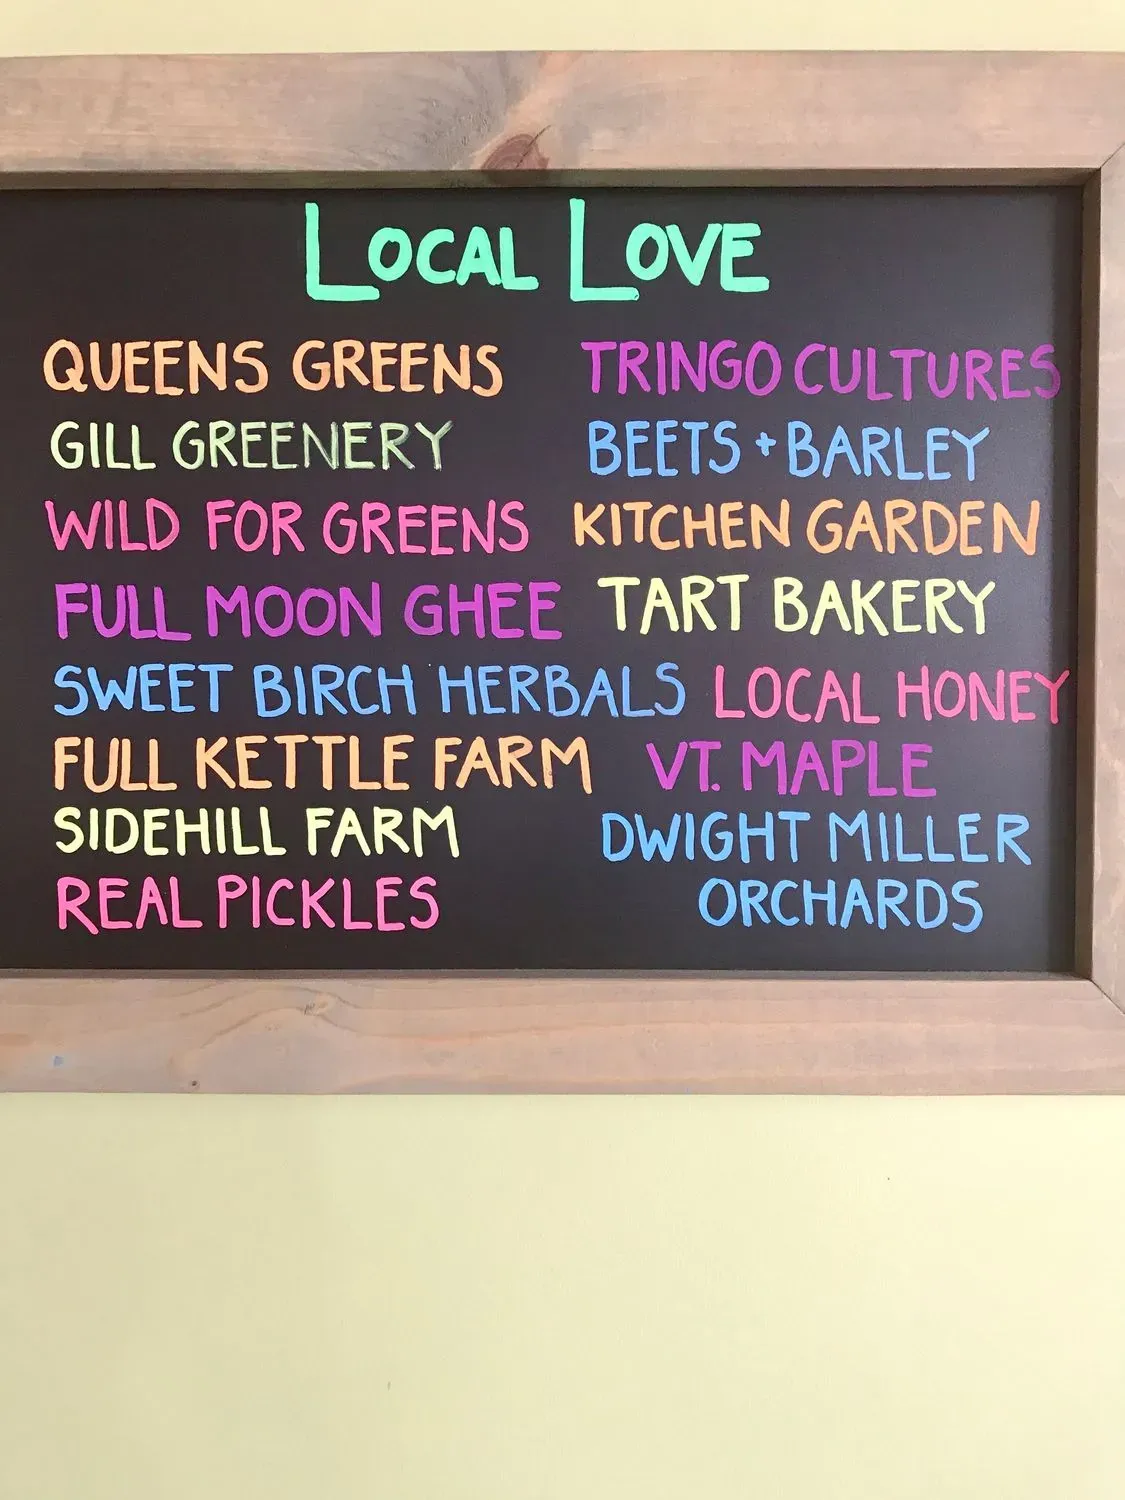 LOCAL LOVE
QUEENS GREENS
GILL GREENERY
WILD FOR GREENS
FULL MOON GHEE
SWEET BIRCH HERBALS
FULL KETTLE FARM
SIDEHILL FARM
REAL PICKLES
TRINGO CULTURES
BEETS + BARLEY
KITCHEN GARDEN
TART BAKERY
LOCAL HONEY
VT. MAPLE
DWIGHT MILLER
ORCHARDS